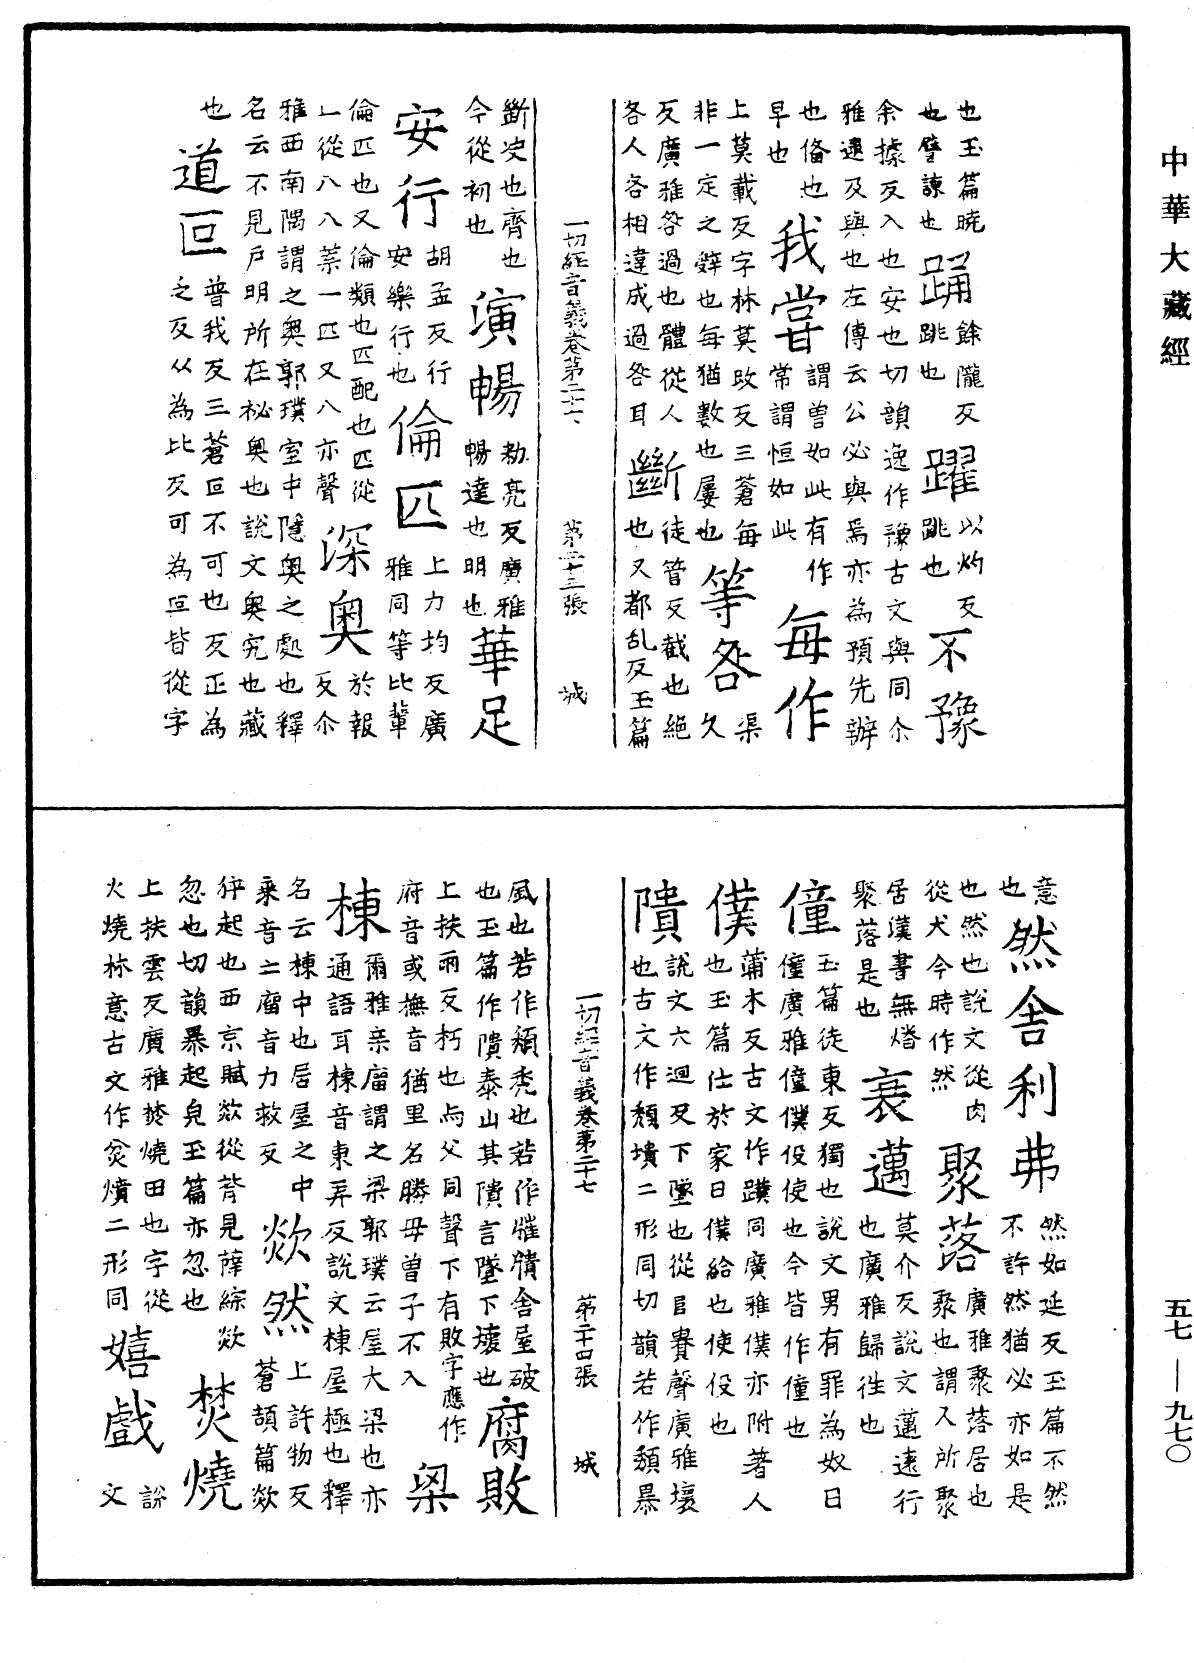 中華大藏經
也玉篇曉
也譬諫也
踊
餘隴反
跳也
躍
以灼反
跳也
不豫
余據反入也安也切韻逸作豫古文與同尒
雅逮及與也左傳云公必與焉亦為預先辦
也俻也
早也
我甞
謂曽如此有作
常謂恒如此
每作
上莫載反字林莫改反三蒼每
非一定之辭也每猶數也屢也
等咎
渠久
反廣雅咎過也體從人
各人各相違成過咎耳
斷
徒管反截也絕
也又都乱反玉篇
一切經音義卷第二十七
第二十三張
城
斷决也齊也
今從初也
演暢
勑亮反廣雅
暢達也明也
華足
安行
胡孟反行
安樂行也
倫匹
上力均反廣
雅同等比輩
倫匹也又倫類也匹配也匹從
匸從八八菒一匹又八亦聲
深奥
於報
反尒
雅西南隅謂之奥郭璞室中隱奥之處也釋
名云不見戶明所在秘奥也說文奥究也藏
也
道叵
普我反三蒼叵不可也反正為
之反从為比反可為叵皆從字
意
也
然舍利弗
然如延反玉篇不然
不許然猶必亦如是
也然也說文從肉
從犬今時作然
聚落
廣雅聚落居也
聚也謂人所聚
居漢書無燔
聚落是也
衰邁
莫介反說文邁遠行
也廣雅歸徃也
僮
玉篇徒東反獨也說文男有罪為奴曰
僮廣雅僮僕役使也今皆作僮也
僕
蒲木反古文作蹼同廣雅僕亦附著人
也玉篇仕於家曰僕給也使役也
隤
說文六迴反下墜也從𨸏貴聲廣雅壞
也古文作頹墤二形同切韻若作頹暴
一切經音義卷第二十七
第二十四張
城
風也若作頹秃也若作㿉㿉舍屋破
也玉篇作隤泰山其隤言墜下壞也
腐敗
上扶雨反朽也与父同聲下有敗字應作
府音或撫音猶里名勝母曽子不入
梁
棟
爾雅亲廇謂之梁郭璞云屋大梁也亦
通語耳棟音東弄反說文棟屋極也釋
名云棟中也居屋之中
亲音亡廇音力救反
欻然
上許物反
蒼頡篇欻
猝起也西京賦欻從背見薛綜欻
忽也切韻暴起皃玉篇亦忽也
焚燒
上扶雲反廣雅焚燒田也字從
火燒林意古文作炃燌二形同
嬉戲
說文
五七—九七〇